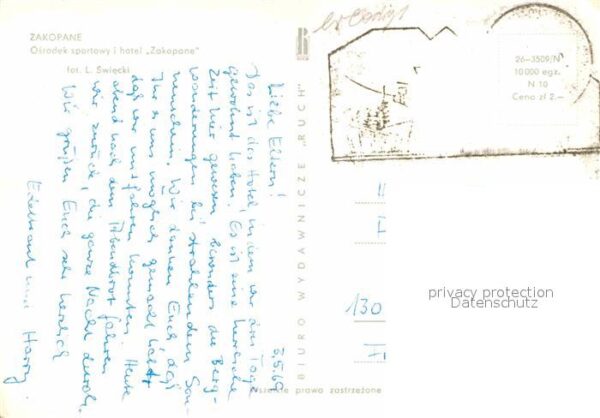 ZAKOPANE
Ośrodek sportowy i hotel „Zakopane"
fot. L. Święcki
3.5.69
Liebe Eltern!
Das ist das Hotel, in dem wir drei Tage
gewohnt haben. Es ist eine herrliche
Zeit hier gewesen besonders die Berg-
wanderungen bei strahlendem Son-
nenschein. Wir danken Euch, daß
Ihr es uns möglich gemacht habt,
daß wir mitfahren konnten. Heute
abend nach dem Abendbrot fahren
wir zurück, die ganze Nacht durch.
Wir grüßen Euch sehr herzlich
Edeltraut und Harry.
BIURO WYDAWNICZE „RUCH"
26-3509/N
10 000 egz.
N 10
Cena zł 2.—
130
privacy protection
Datenschutz
Wszelkie prawa zastrzeżone